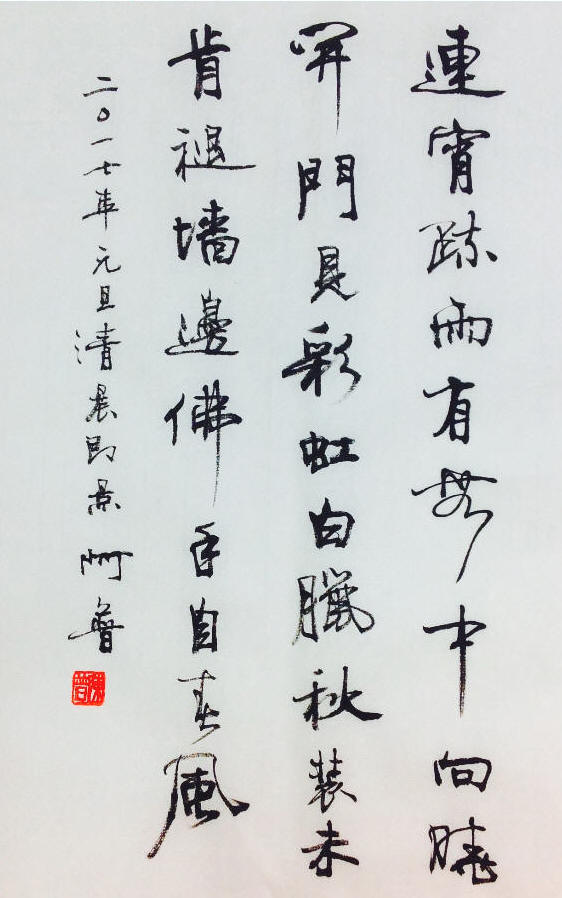 連宵疏雨有無中向曉
開門見彩虹白臘秋裝未
肯褪墻邊佛手自春風
二〇一七年元旦清晨即景 阿魯